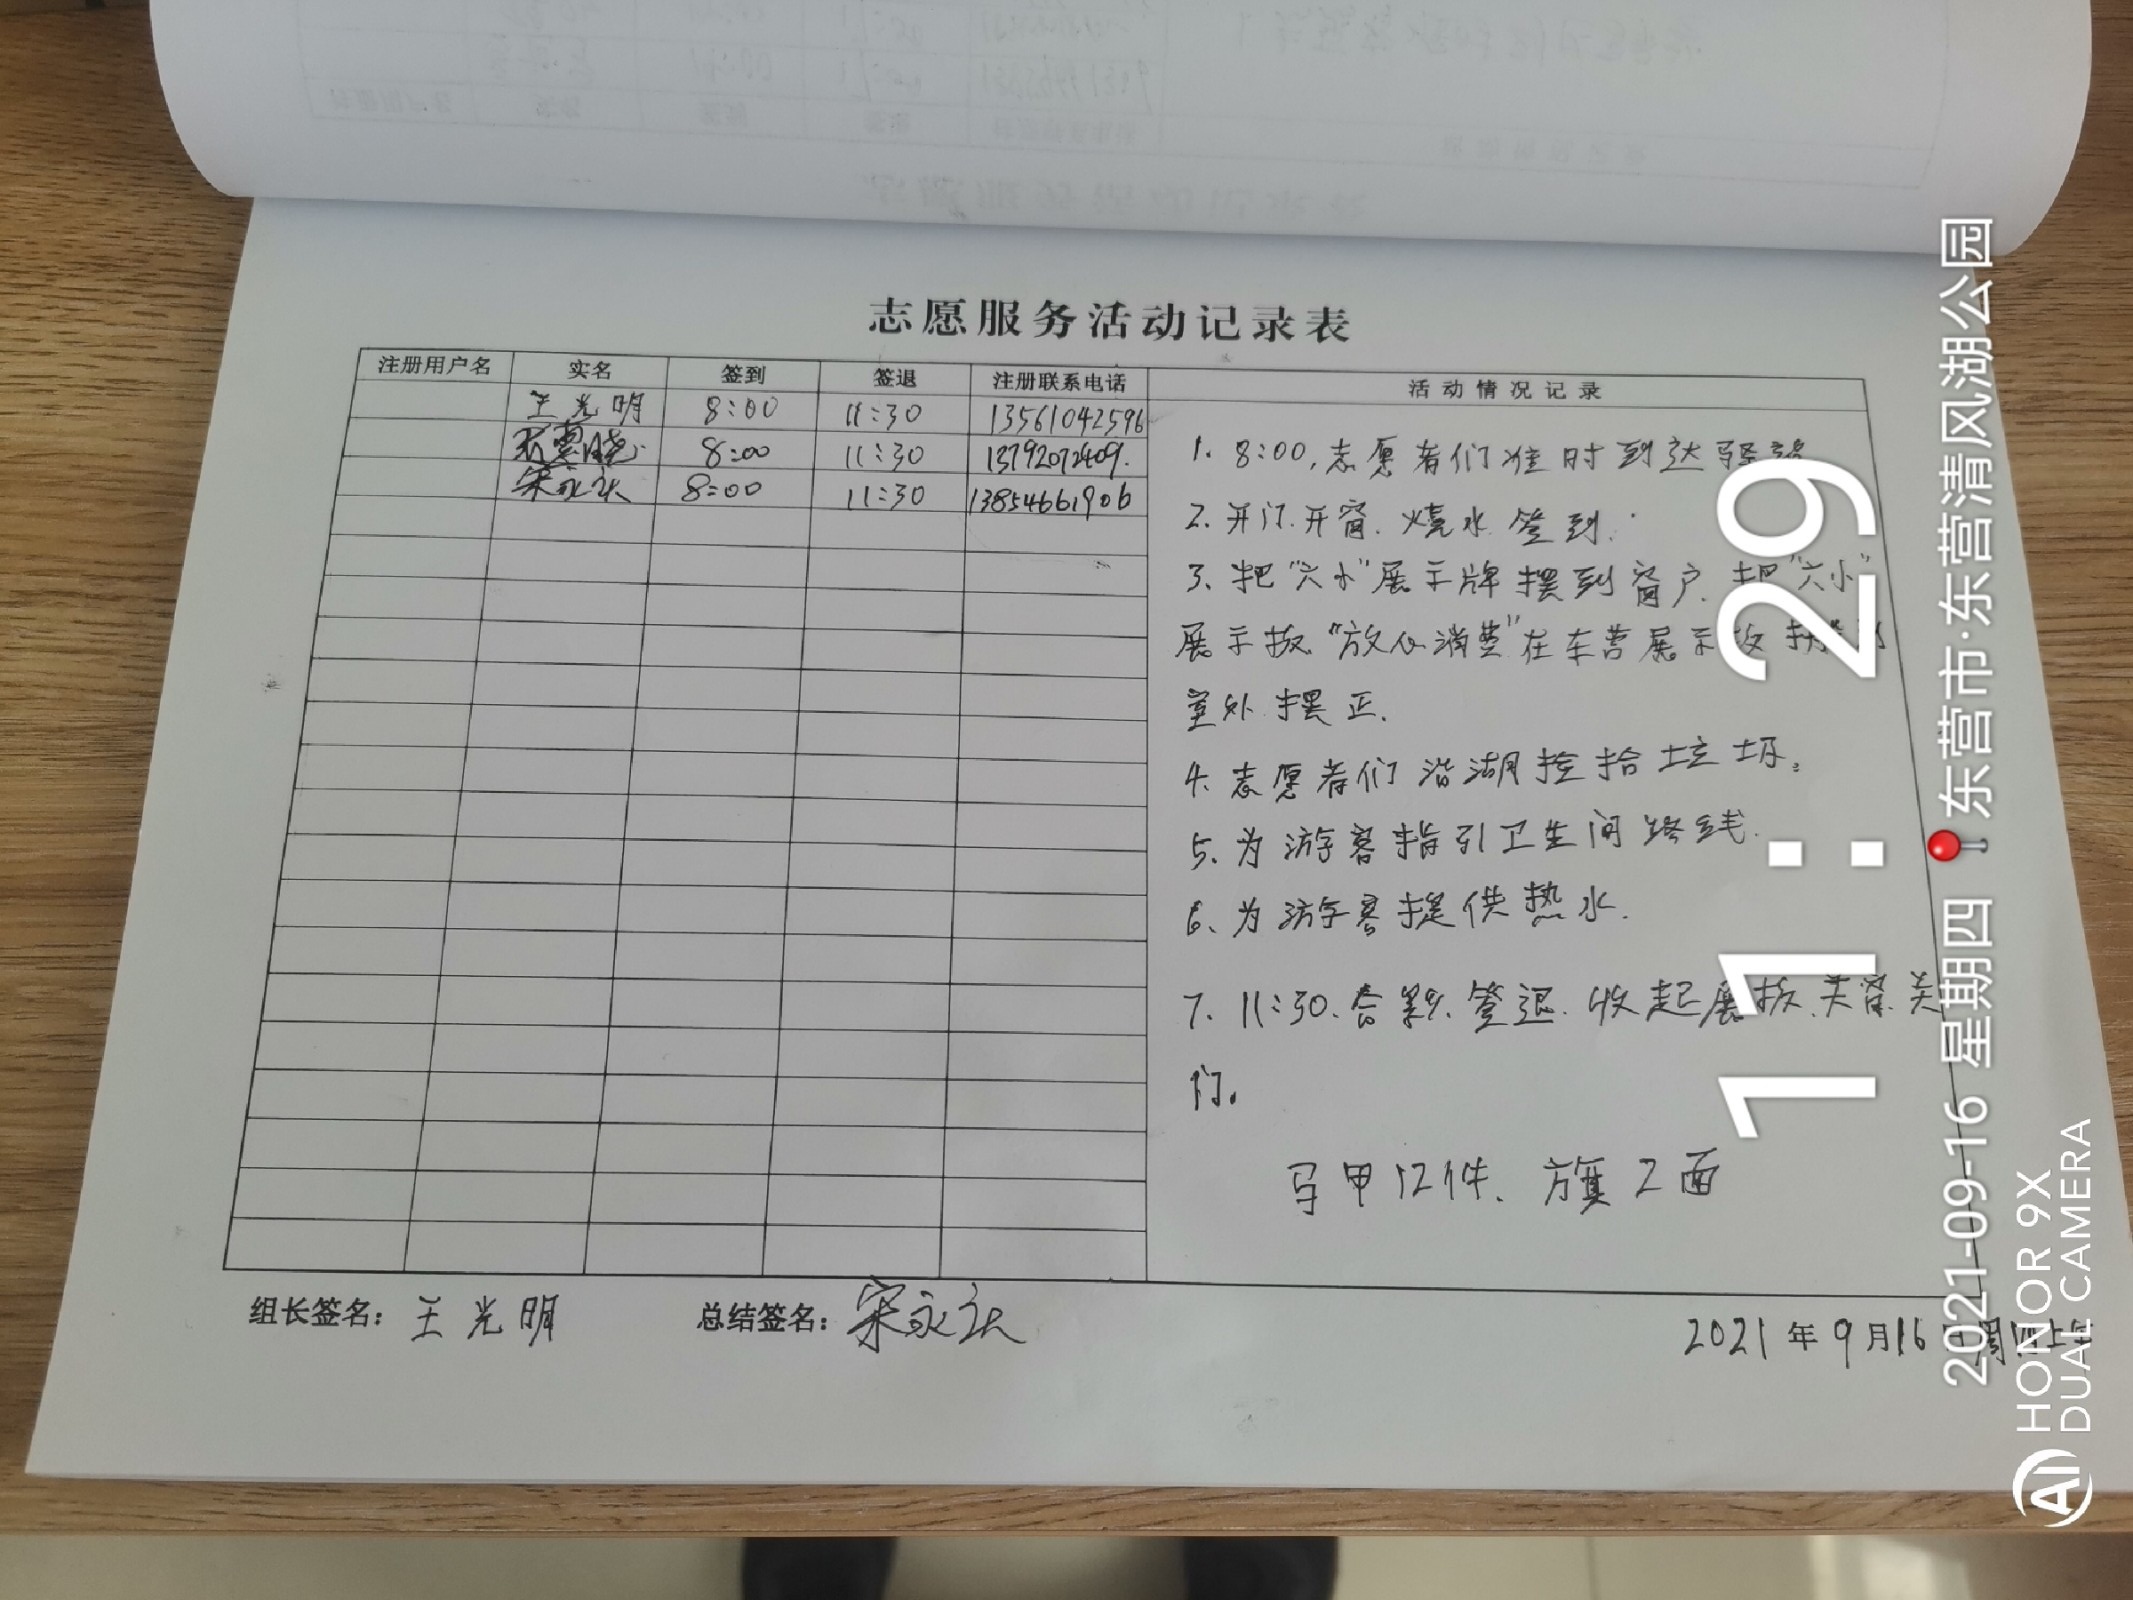 志愿服务活动记录表
注册用户名 实名 签到 签退 注册联系电话 活动情况记录
王光明 8:00 11:30 13561042596
8:00 11:30 13792072409.
宋永 8:00 11:30 13854661906
1. 8:00,志愿者们准时到达驿站
2. 开门.开窗.烧水.签到.
3、把“六小”展示牌摆到窗户.把“六小”
展示板“放心消费”在东营展示板
室外摆正.
4.志愿者们沿湖捡拾垃圾。
5、为游客指引卫生间路线.
6、为游客提供热水.
7、11:30.合影.签退.收起展板.关窗.关
门。
马甲12件、旗2面
组长签名: 王光明 总结签名: 宋永
2021年9月16日周四上午
11:29
2021-09-16 星期四 东营市·东营清风湖公园
HONOR 9X
DUAL CAMERA
AI